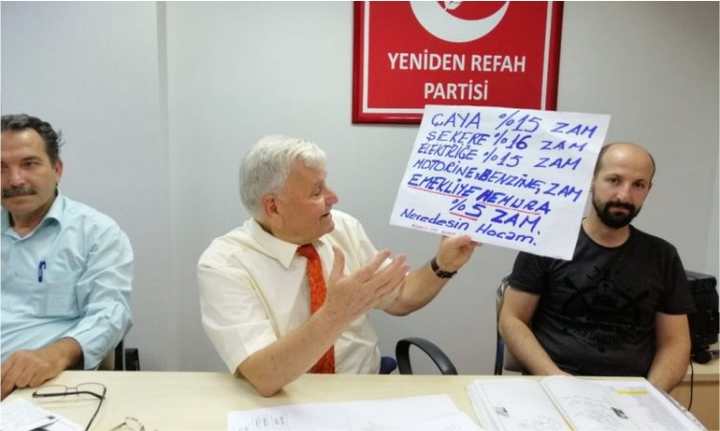 YENİDEN REFAH
PARTİSİ
ÇAYA %15 ZAM
ŞEKERE %16 ZAM
ELEKTRİĞE %15 ZAM
MOTORİNE, BENZİNE, ZAM
EMEKLİYE MEMURA
%5 ZAM.
Neredesin Hocam.